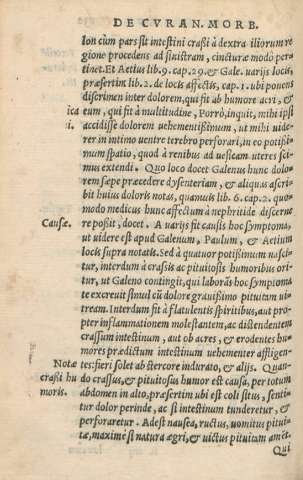 DE CVRAN. MORB.
lon cùm pars sit intestini crassi à dextra iliorum re
gione procedens ad sinistram, cincturæ modò per
tinet. Et Aetius lib. 9. cap. 29. & Gale. varijs locis,
præsertim lib. 2. de locis affectis, cap. 1. ubi ponens
discrimen inter dolorem, qui fit ab humore acri, &
ica eum, qui fit à multitudine, Porrò, inquit, mihi ipsi
i. accidisse dolorem uehementissimum, ut mihi uide-
rer in intimo uentre terebro perforari, in eo potissi-
mum spatio, quod à renibus ad uesicam ureteres sci-
mus extendi. Quo loco docet Galenus hunc dolo-
rem sæpe præcedere dysenteriam, & aliquas ascri-
bit huius doloris notas, quamuis lib. 6. cap. 2. quo-
modo medicus hunc affectum à nephritide discerne
Causæ. re possit, docet. A uarijs fit causis hoc symptoma,
ut uidere est apud Galenum, Paulum, & Aetium
locis supra notatis. Sed à quatuor potissimum nasci-
tur, interdum à crassis ac pituitosis humoribus ori-
tur, ut Galeno contingit, qui laborās hoc symptoma
te excreuit simul cū dolore grauissimo pituitam uit-
ream. Interdum fit à flatulentis spiritibus, aut pro-
pter inflammationem molestantem, ac distendentem
crassum intestinum, aut ob acres, & erodentes hu-
mores prædictum intestinum uehementer affligen-
Notæ tes: fieri solet ab stercore indurato, & alijs. Quan-
crassi hu do crassus, & pituitosus humor est causa, per totum
moris. abdomen in alto, præsertim ubi est coli situs, senti-
tur dolor perinde, ac si intestinum tunderetur, &
perforaretur. Adest nausea, ructus, uomitus pituito
tæ, maximè si natura ægri, & uictus pituitam amet.
Qui